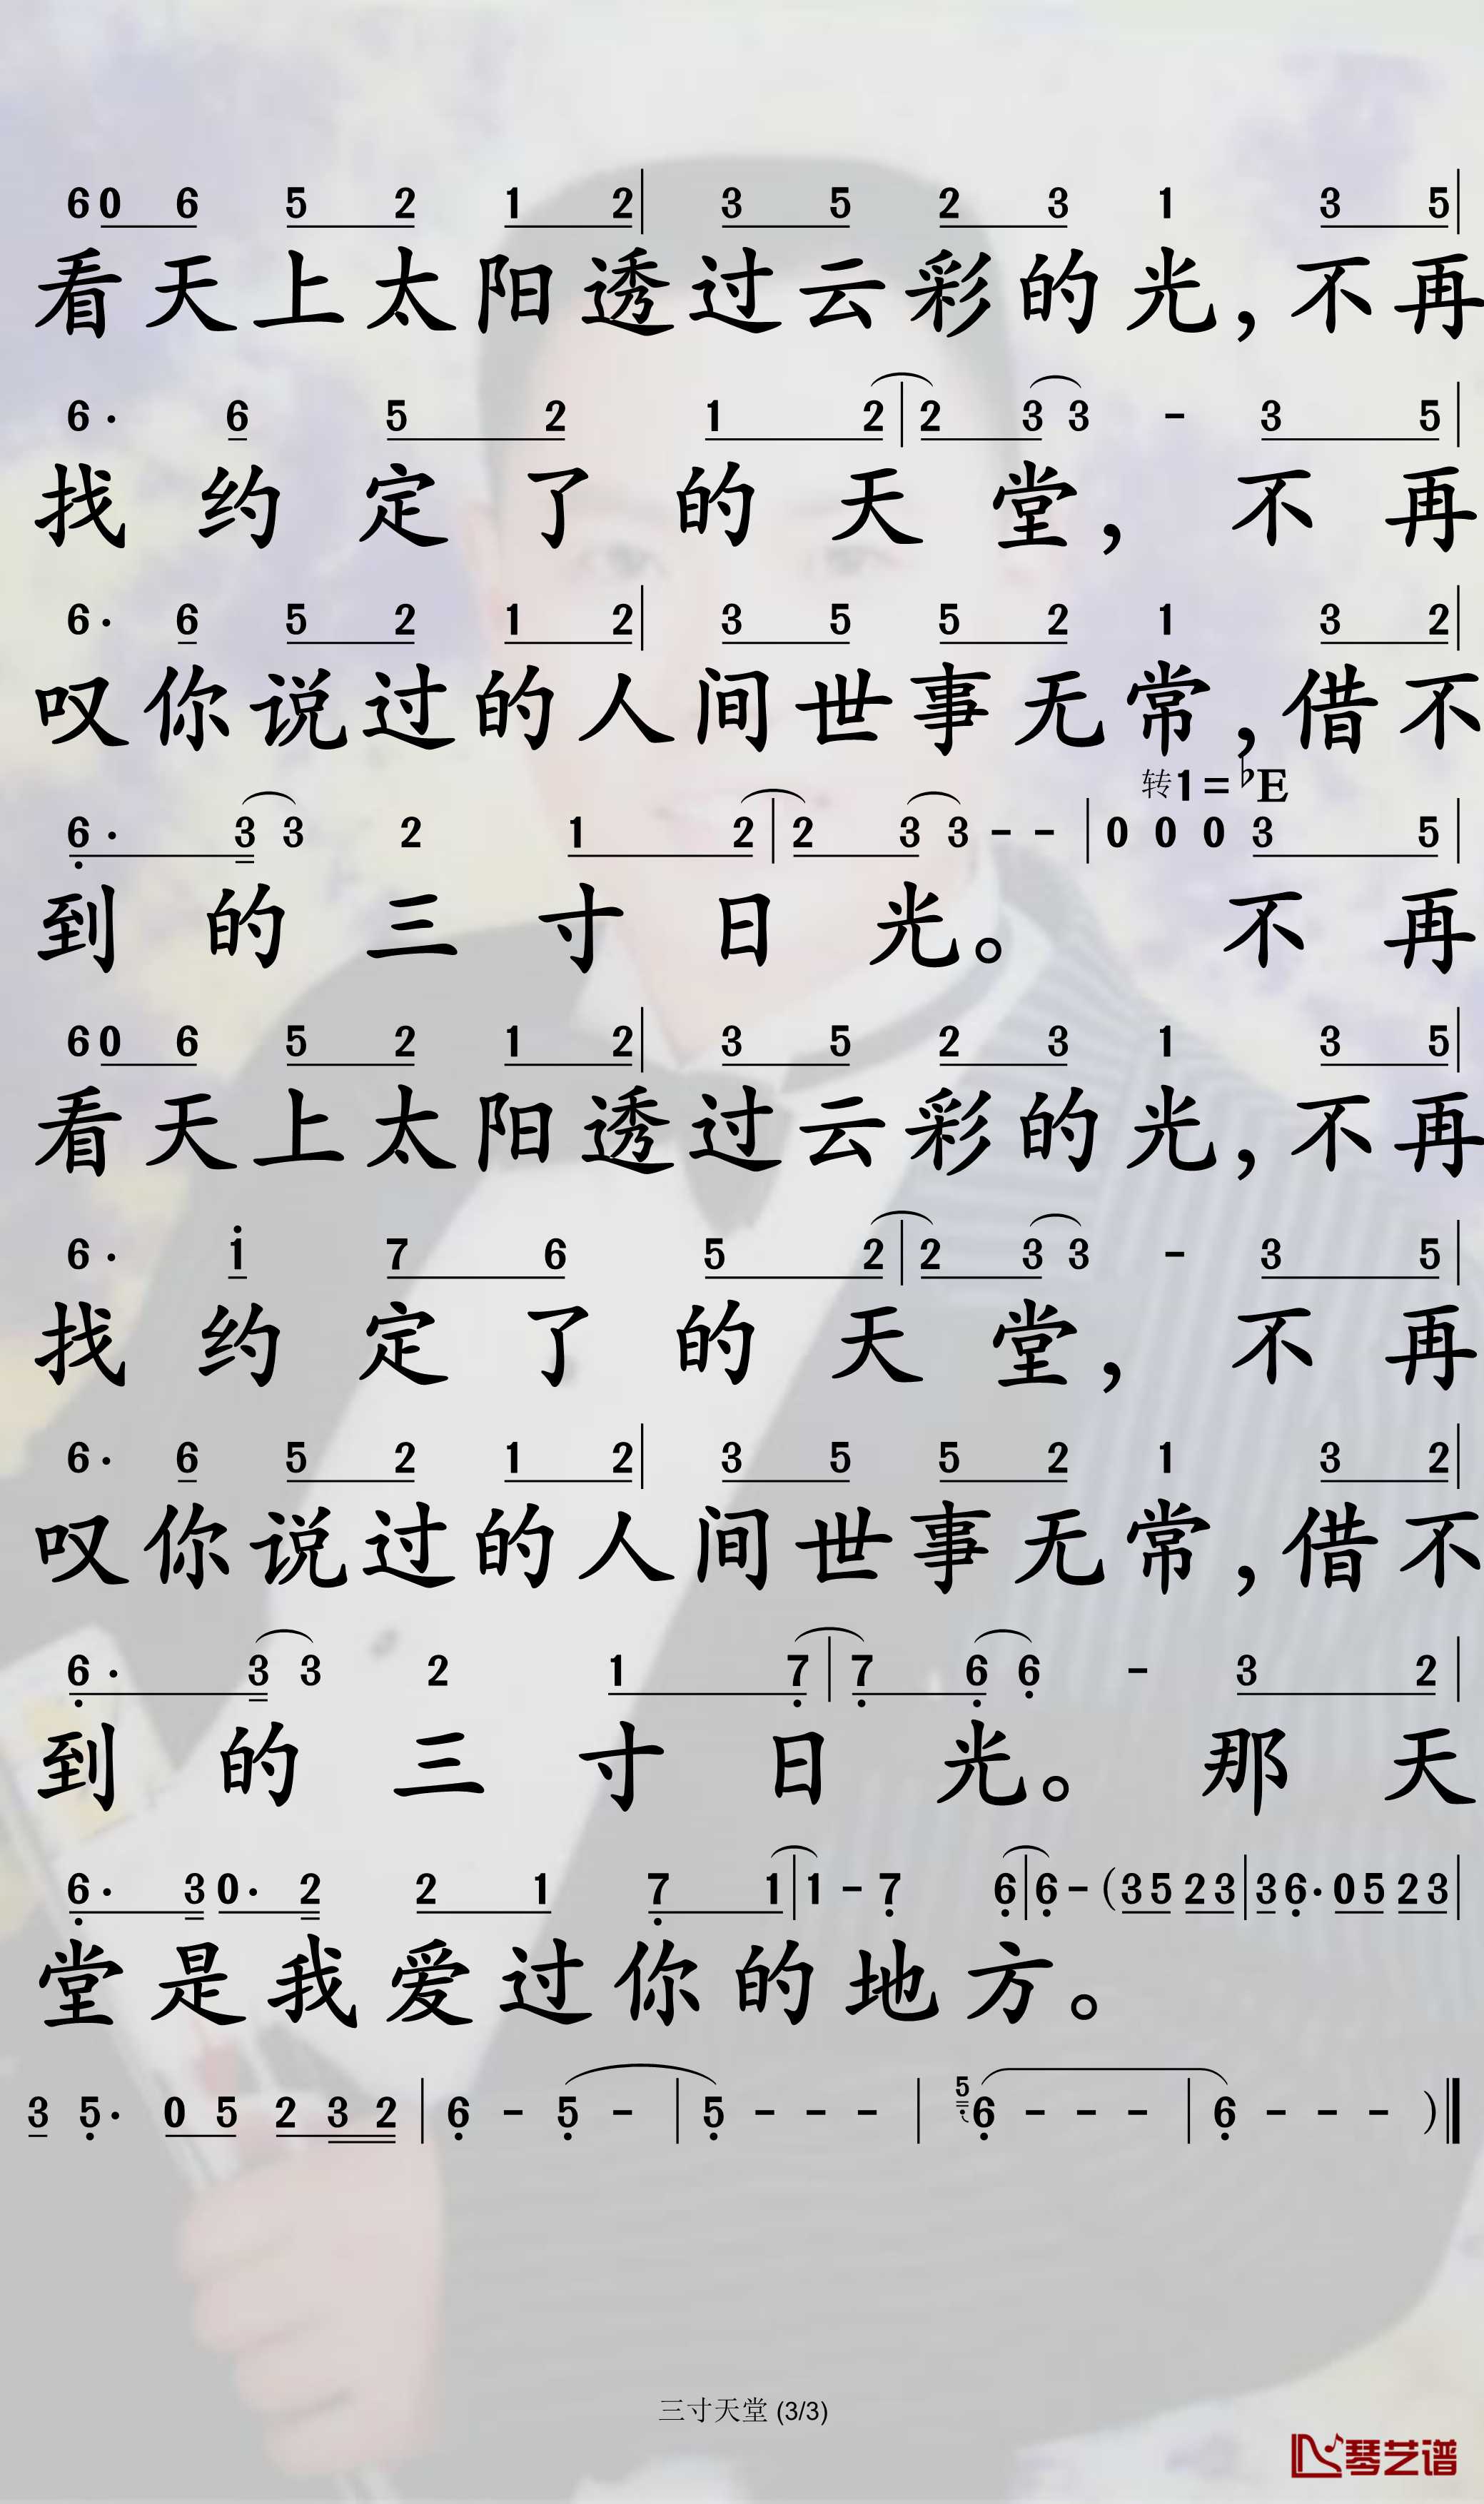 6 0 6 5 2 1 2 | 3 5 2 3 1 3 5 |
看天上太阳透过云彩的光,不再
6· 6 5 2 1 2 | 2 3 3 - 3 5 |
找约定了的天堂,不再
6· 6 5 2 1 2 | 3 5 5 2 1 3 2 |
叹你说过的人间世事无常,借不
转1=♭E
6· 3 3 2 1 2 | 2 3 3 - - | 0 0 0 3 5 |
到的三寸日光。 不再
6 0 6 5 2 1 2 | 3 5 2 3 1 3 5 |
看天上太阳透过云彩的光,不再
6· i 7 6 5 2 | 2 3 3 - 3 5 |
找约定了的天堂,不再
6· 6 5 2 1 2 | 3 5 5 2 1 3 2 |
叹你说过的人间世事无常,借不
6· 3 3 2 1 7 | 7 6 6 - 3 2 |
到的三寸日光。那天
6· 3 0· 2 2 1 7 1 | 1 - 7 6 | 6 - (3 5 2 3 | 3 6· 0 5 2 3 |
堂是我爱过你的地方。
3 5· 0 5 2 3 2 | 6 - 5 - | 5 - - - | 5 6 - - - | 6 - - - )‖
三寸天堂 (3/3)
琴艺谱